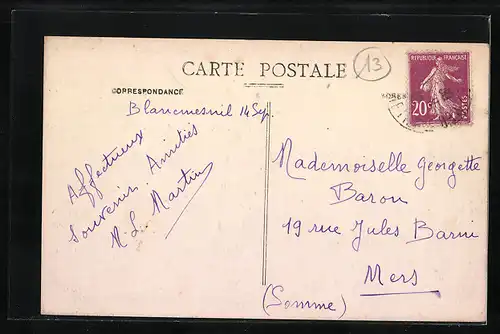 CARTE POSTALE
13
CORRESPONDANCE
Blancmesnil 14 Sep.
Affectueux
Souvenir Amitiés
M. L. Martin
REPUBLIQUE FRANÇAISE
20c
POSTES
Mademoiselle Georgette
Baron
19 rue Jules Barni
Mers
(Somme)